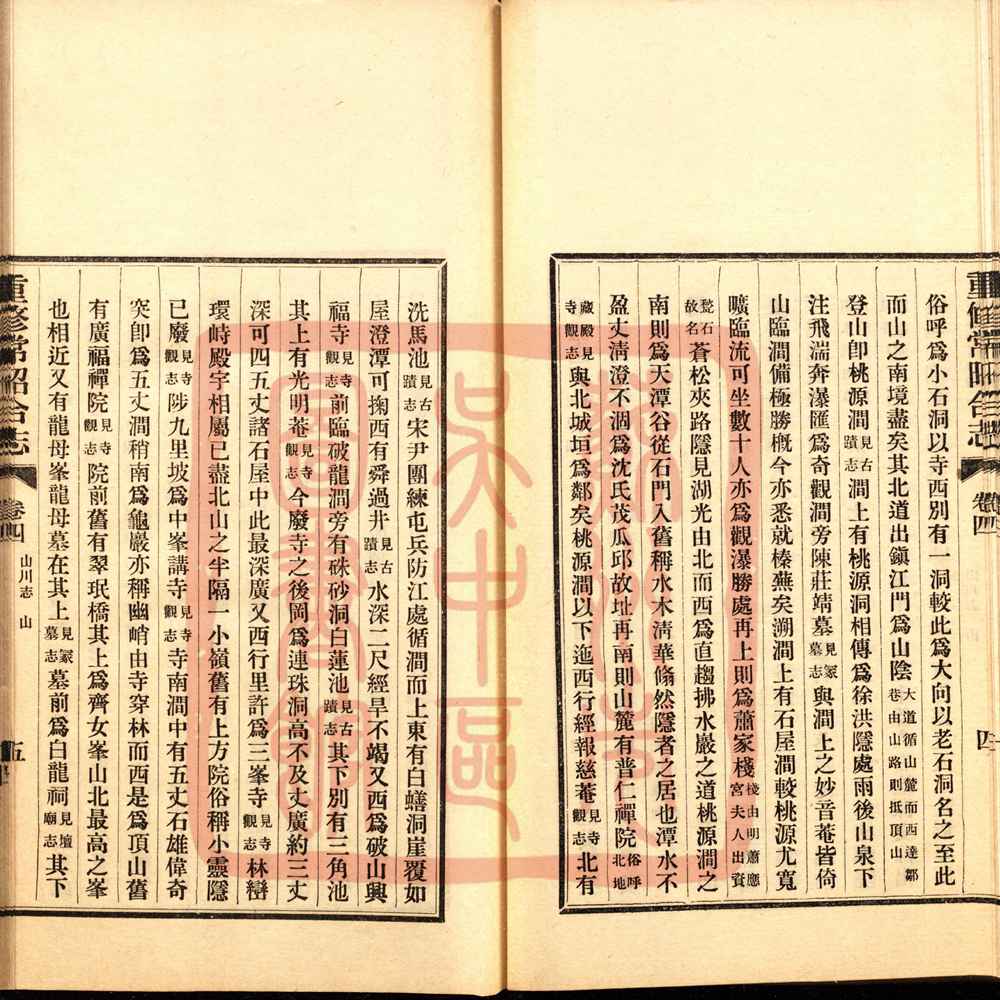 俗呼爲小石洞以寺西別有一洞較此爲大向以老石洞名之至此
而山之南境盡矣其北道出鎭江門爲山陰大道循山麓而西達鄒巷由山路則抵頂山
登山卽桃源澗見古蹟志澗上有桃源洞相傳爲徐洪隱處雨後山泉下
注飛湍奔瀑匯爲奇觀澗旁陳莊靖墓見冢墓志與澗上之妙音菴皆倚
山臨澗備極勝槪今亦悉就榛蕪矣溯澗上有石屋澗較桃源尤寬
曠臨流可坐數十人亦爲觀瀑勝處再上則爲蕭家棧棧由明蕭應宮夫人出資
甃石故名蒼松夾路隱見湖光由北而西爲直趨拂水巖之道桃源澗之
南則爲天潭谷從石門入舊稱水木淸華翛然隱者之居也潭水不
盈丈淸澄不涸爲沈氏茂瓜邱故址再南則山麓有普仁禪院俗呼北地
藏殿見寺觀志與北城垣爲鄰矣桃源澗以下迤西行經報慈菴見寺觀志北有
重修常昭合志
卷四
四
洗馬池見古蹟志宋尹團練屯兵防江處循澗而上東有白蟮洞崖覆如
屋澄潭可掬西有舜過井見古蹟志水深二尺經旱不竭又西爲破山興
福寺見寺觀志前臨破龍澗旁有硃砂洞白蓮池見古蹟志其下別有三角池
其上有光明菴見寺觀志今廢寺之後岡爲連珠洞高不及丈廣約三丈
深可四五丈諸石屋中此最深廣又西行里許爲三峯寺見寺觀志林巒
環峙殿宇相屬已盡北山之半隔一小嶺舊有上方院俗稱小靈隱
已廢見寺觀志陟九里坡爲中峯講寺見寺觀志寺南澗中有五丈石雄偉奇
突卽爲五丈澗稍南爲龜巖亦稱幽峭由寺穿林而西是爲頂山舊
有廣福禪院見寺觀志院前舊有翠珉橋其上爲齊女峯山北最高之峯
也相近又有龍母峯龍母墓在其上見冢墓志墓前爲白龍祠見壇廟志其下
重修常昭合志
卷四
山川志 山
五